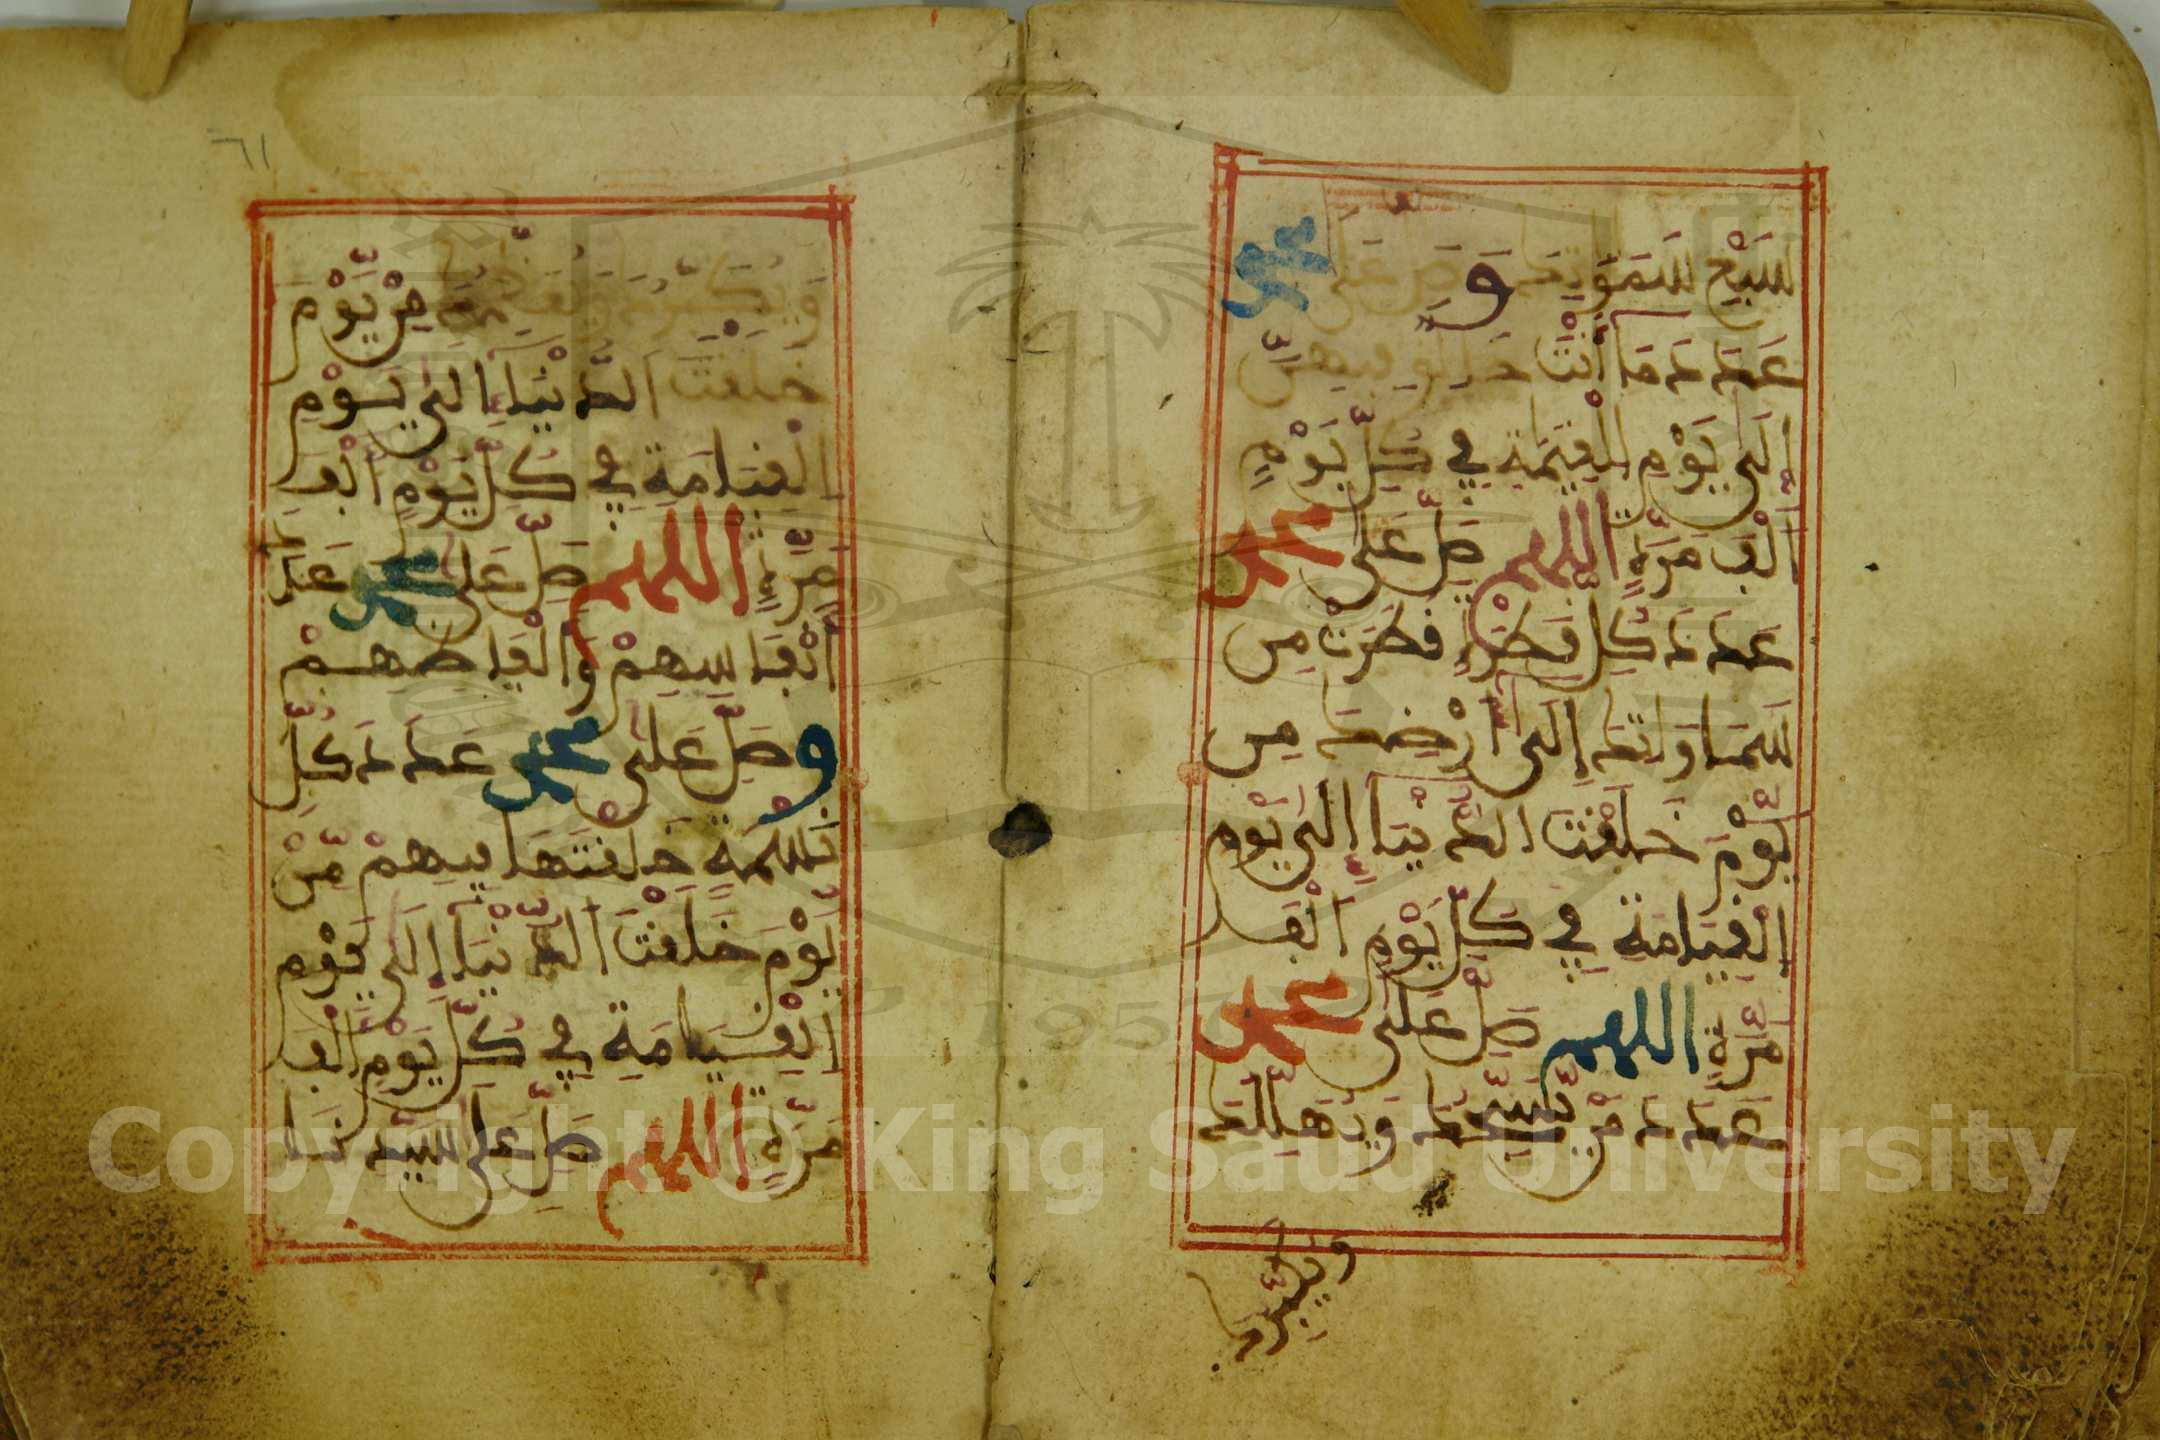 سَبْعِ سَمَوٰتِكَ وَصَلِّ عَلَى مُحَمَّد
عَدَدَ مَا أَنْتَ خَالِقٌ فِيهِنَّ
إِلَى يَوْمِ الْقِيَمَةِ فِي كُلِّ يَوْمٍ
أَلْفَ مَرَّةٍ اللهم صَلِّ عَلَى محمد
عَدَدَ كُلِّ قَطْرَةٍ قَطَرَتْ مِن
سَمَاوَاتِكَ إِلَى أَرْضِكَ مِن
يَّوْمَ خَلَقْتَ الدُّنْيَا إِلَى يَوْمِ
الْقِيَامَةِ فِي كُلِّ يَوْمٍ أَلْفَ
مَرَّةٍ اللهم صَلِّ عَلَى محمد
عَدَدَ مَنْ يُّسَبِّحُكَ وَيُهَلِّلُكَ
ويكبرك
٦١
وَيُكَبِّرُكَ وَيُعَظِّمُكَ مِنْ يَّوْمَ
خَلَقْتَ الدُّنْيَا إِلَى يَوْمِ
الْقِيَامَةِ فِي كُلِّ يَوْمٍ أَلْفَ
مَرَّةٍ اللهم صَلِّ عَلَى محمد عَدَدَ
أَنْفَاسِهِمْ وَأَلْفَاظِهِمْ
وصَلِّ عَلَى محمد عَدَدَ كُلِّ
نَسَمَةٍ خَلَقْتَهَا فِيهِمْ مِّنْ
يَّوْمَ خَلَقْتَ الدُّنْيَا إِلَى يَوْمِ
الْقِيَامَةِ فِي كُلِّ يَوْمٍ أَلْفَ
مَرَّةٍ اللهم صَلِّ عَلَى سَيِّدِنَا
1957
Copyright © King Saud University